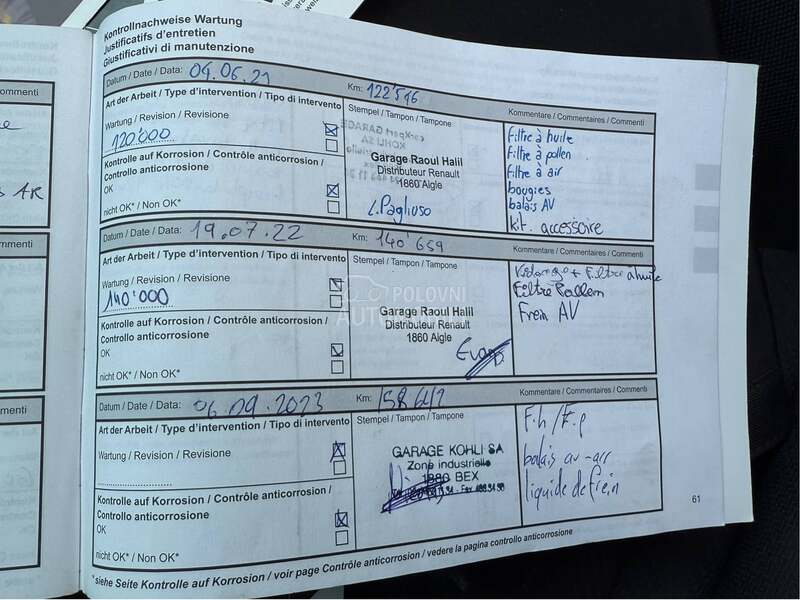 Kontrollnachweise Wartung
Justificatifs d'entretien
Giustificativi di manutenzione
Datum / Date / Data: 04.06.21 Km: 122'546
Art der Arbeit / Type d'intervention / Tipo di intervento Stempel / Tampon / Tampone Kommentare / Commentaires / Commenti
Wartung / Revision / Revisione
120'000
Kontrolle auf Korrosion / Contrôle anticorrosion /
Controllo anticorrosione
OK
nicht OK* / Non OK*
Garage Raoul Halil
Distributeur Renault
1860 Aigle
L. Pagliuso
filtre à huile
filtre à pollen
filtre à air
bougies
balais AV
kit accessoire
Datum / Date / Data: 19.07.22 Km: 140'659
Art der Arbeit / Type d'intervention / Tipo di intervento Stempel / Tampon / Tampone Kommentare / Commentaires / Commenti
Wartung / Revision / Revisione
140'000
Kontrolle auf Korrosion / Contrôle anticorrosion /
Controllo anticorrosione
OK
nicht OK* / Non OK*
Garage Raoul Halil
Distributeur Renault
1860 Aigle
Vidange + Filtre a huile
Filtre Pollen
Frein AV
POLOVNI
Datum / Date / Data: 06.09.2023 Km: 158 642
Art der Arbeit / Type d'intervention / Tipo di intervento Stempel / Tampon / Tampone Kommentare / Commentaires / Commenti
Wartung / Revision / Revisione
Kontrolle auf Korrosion / Contrôle anticorrosion /
Controllo anticorrosione
OK
nicht OK* / Non OK*
GARAGE KOHLI SA
Zone industrielle
1880 BEX
F.h / F.p
balais av - arr
liquide de frein
*siehe Seite Kontrolle auf Korrosion / voir page Contrôle anticorrosion / vedere la pagina controllo anticorrosione
61
AR